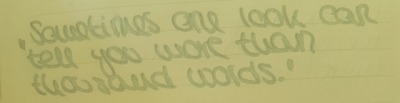 "Sometimes one look can
tell you more than
thousand words."